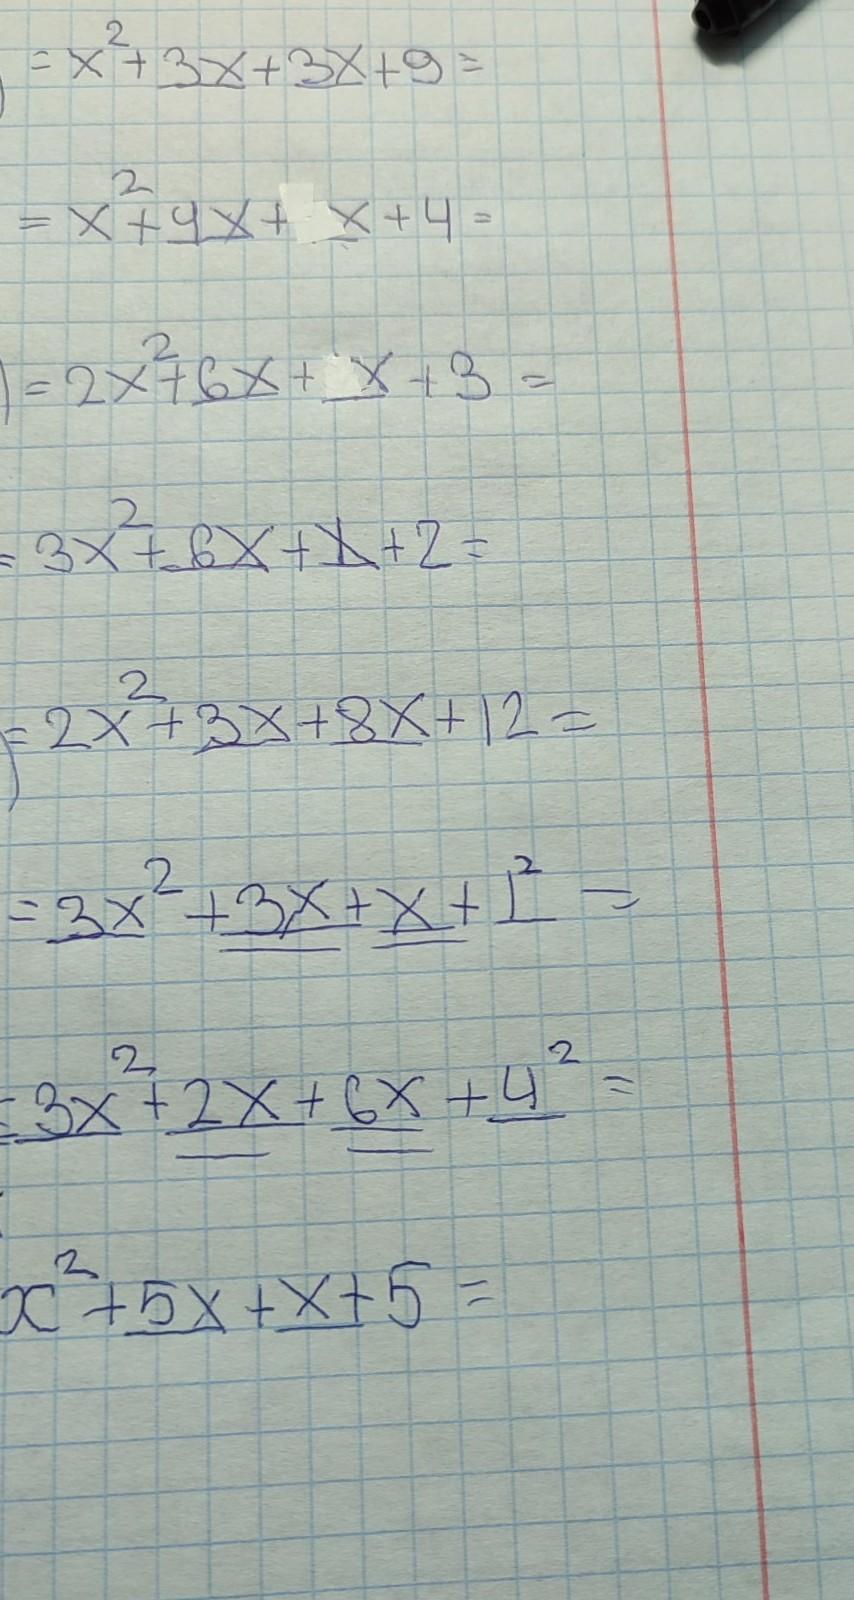 ) = x² + 3x + 3x + 9 =
= x² + 4x + x + 4 =
) = 2x² + 6x + x + 3 =
= 3x² + 6x + x + 2 =
) = 2x² + 3x + 8x + 12 =
= 3x² + 3x + x + 1² =
= 3x² + 2x + 6x + 4² =
x² + 5x + x + 5 =